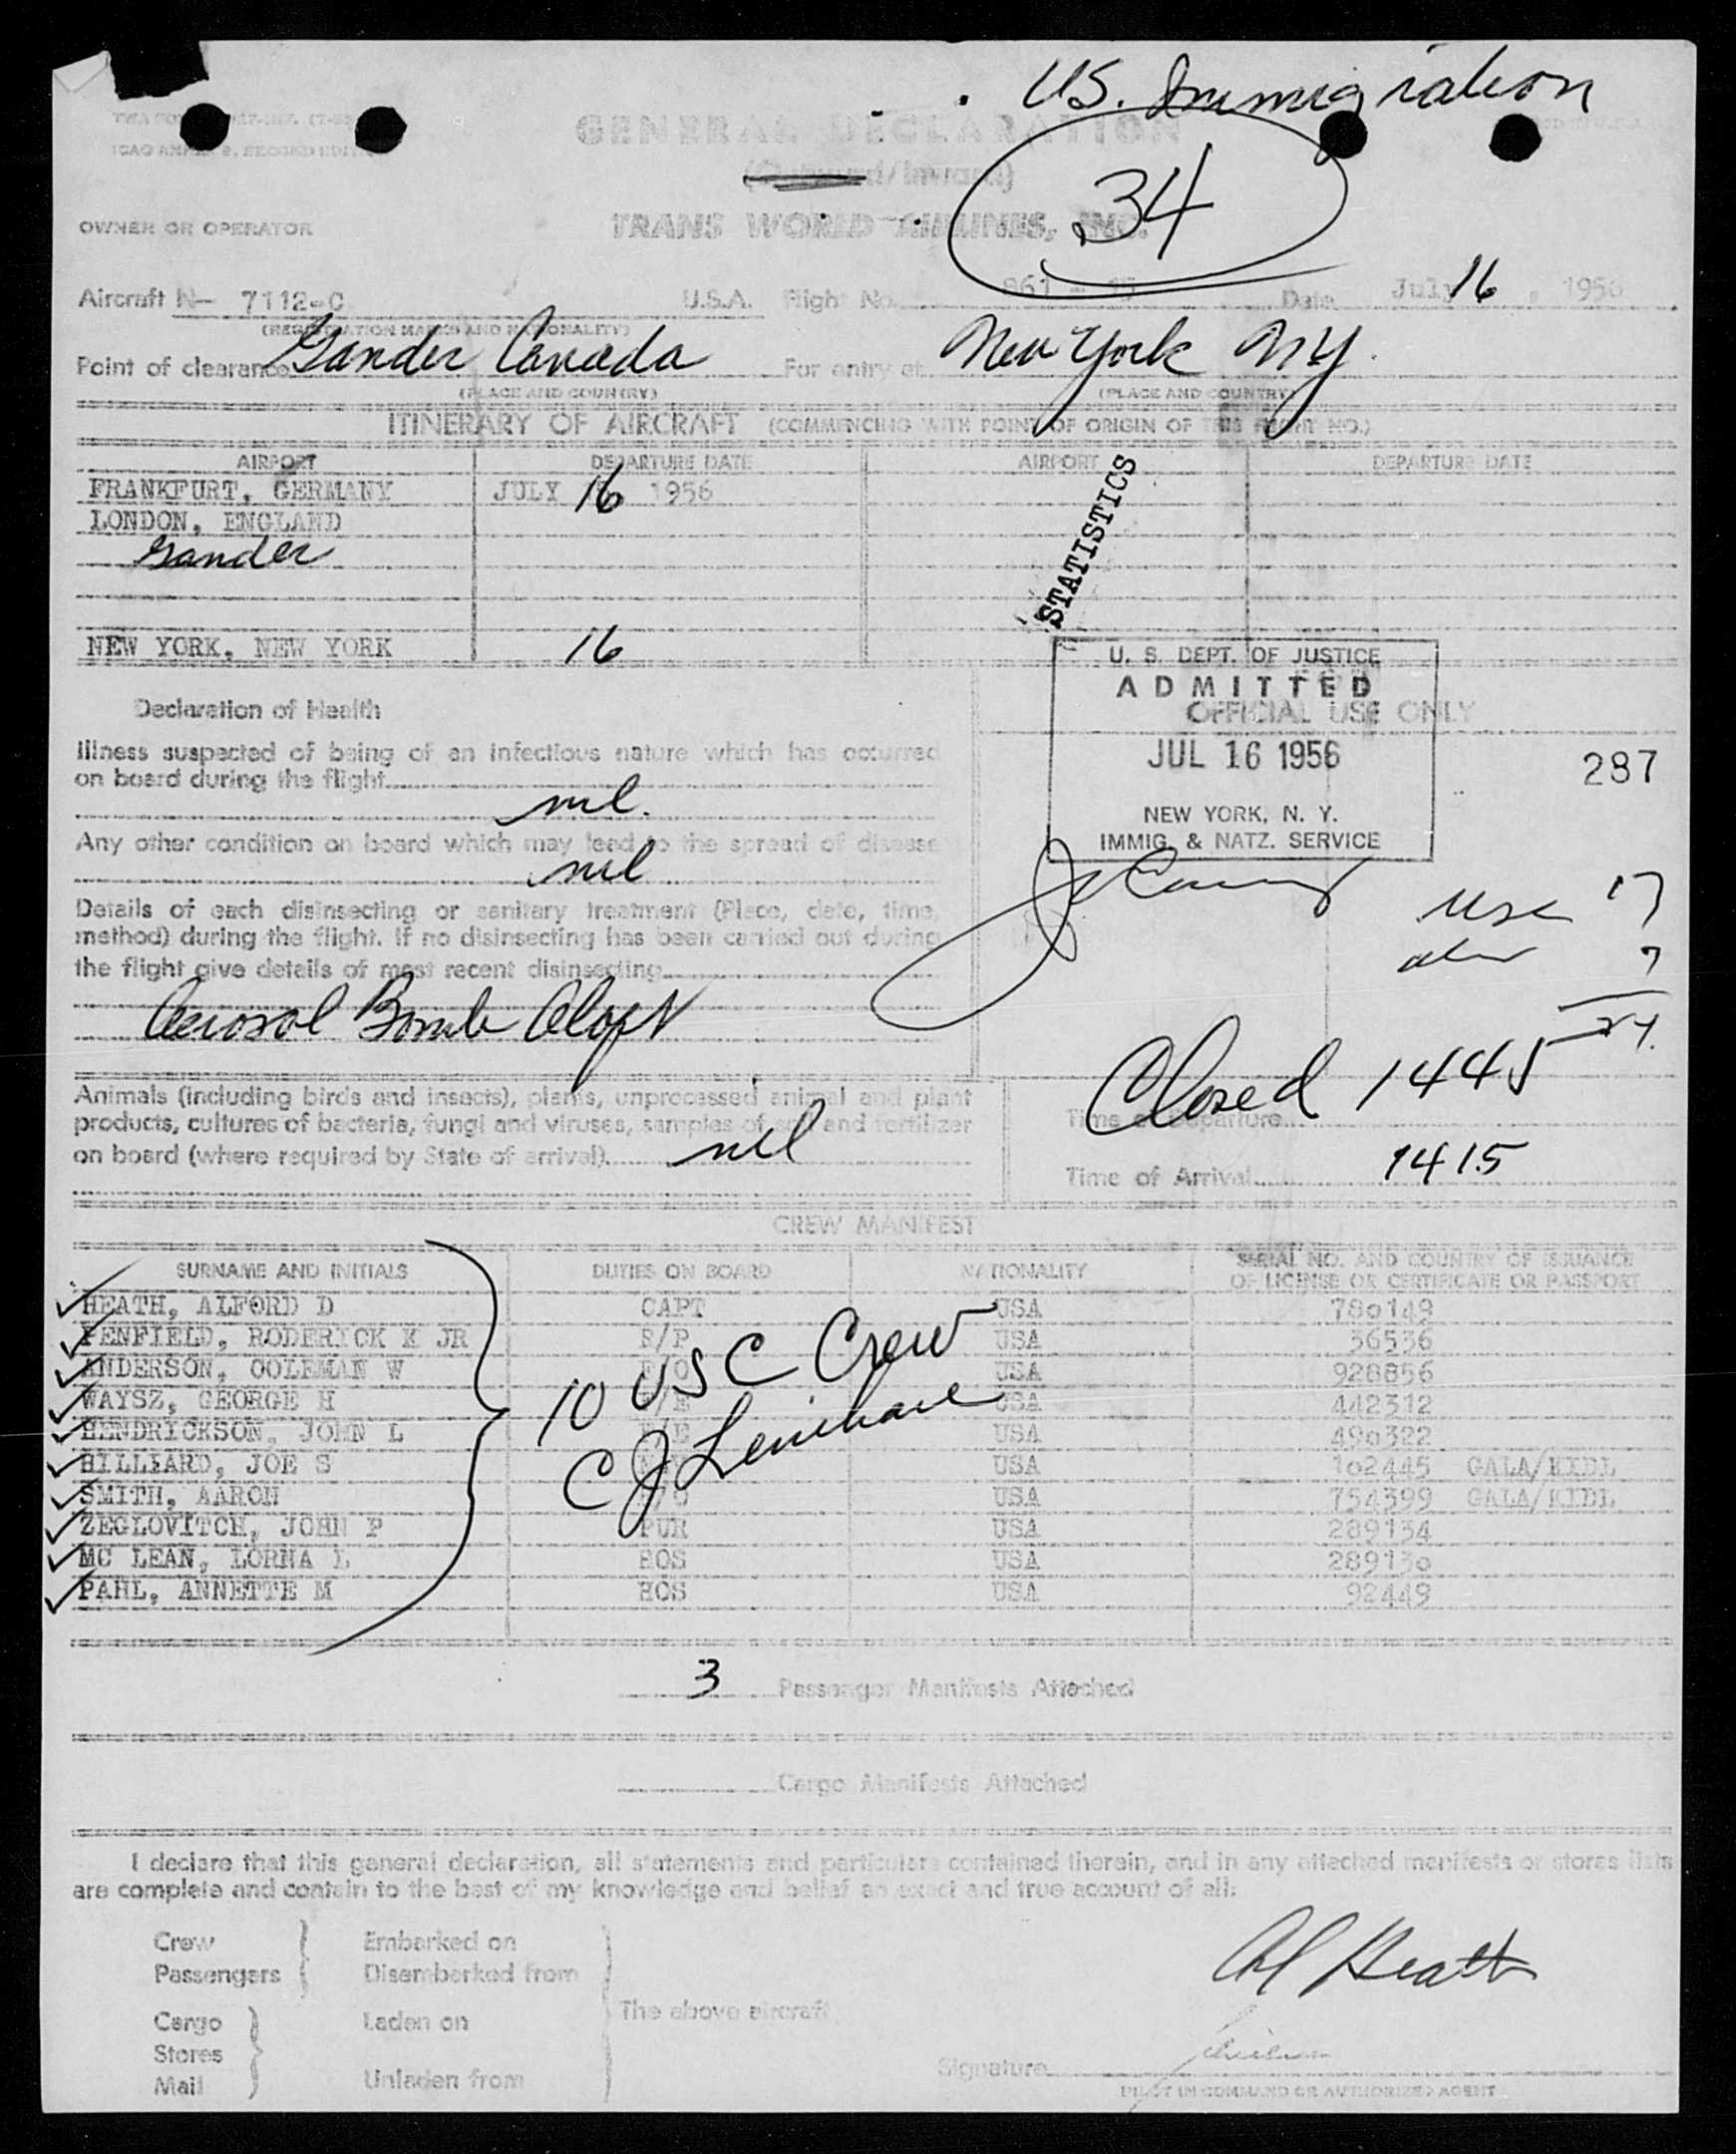 U.S. Immigration
GENERAL DECLARATION
(Outward/Inward)
34
OWNER OR OPERATOR TRANS WORLD AIRLINES, INC.
Aircraft N- 7112-C U.S.A. Flight No. 861 - 15 Date July 16, 1956
(REGISTRATION MARKS AND NATIONALITY)
Point of clearance Gander Canada For entry at New York NY.
(PLACE AND COUNTRY) (PLACE AND COUNTRY)
ITINERARY OF AIRCRAFT (COMMENCING WITH POINT OF ORIGIN OF THIS FLIGHT NO.)
AIRPORT DEPARTURE DATE AIRPORT DEPARTURE DATE
FRANKFURT, GERMANY JULY 16 1956
LONDON, ENGLAND
Gander
STATISTICS
NEW YORK, NEW YORK 16
U. S. DEPT. OF JUSTICE
ADMITTED
JUL 16 1956
NEW YORK, N. Y.
IMMIG. & NATZ. SERVICE
OFFICIAL USE ONLY
287
Declaration of Health
Illness suspected of being of an infectious nature which has occurred
on board during the flight
nil.
Any other condition on board which may lead to the spread of disease
nil
Details of each disinsecting or sanitary treatment (Place, date, time,
method) during the flight. If no disinsecting has been carried out during
the flight give details of most recent disinsecting
Aerosol Bomb Aloft
usc 17
7
24.
Animals (including birds and insects), plants, unprocessed animal and plant
products, cultures of bacteria, fungi and viruses, samples of soil and fertilizer
on board (where required by State of arrival) nil
Closed 1445
Time of Departure
Time of Arrival 1415
CREW MANIFEST
SURNAME AND INITIALS DUTIES ON BOARD NATIONALITY SERIAL NO. AND COUNTRY OF ISSUANCE
OF LICENSE OR CERTIFICATE OR PASSPORT
HEATH, ALFORD D CAPT USA 780149
PENFIELD, RODERICK K JR F/P USA 36536
ANDERSON, COLEMAN W F/O USA 928856
WAYSZ, GEORGE H F/E USA 442312
HENDRICKSON, JOHN L F/E USA 490322
HILLIARD, JOE S USA 102445 GALA/KIDL
SMITH, AARON USA 754399 GALA/KIDL
ZEGLOVITCH, JOHN P PUR USA 289134
MC LEAN, LORNA L HOS USA 289130
PAHL, ANNETTE M HOS USA 92449
10 USC Crew
C J Lenihan
3 Passenger Manifests Attached
Cargo Manifests Attached
I declare that this general declaration, all statements and particulars contained therein, and in any attached manifests or stores lists
are complete and contain to the best of my knowledge and belief an exact and true account of all:
Crew Embarked on
Passengers Disembarked from
Cargo Laden on The above aircraft
Stores
Mail Unladen from
Al Heath
Signature
PILOT IN COMMAND OR AUTHORIZED AGENT